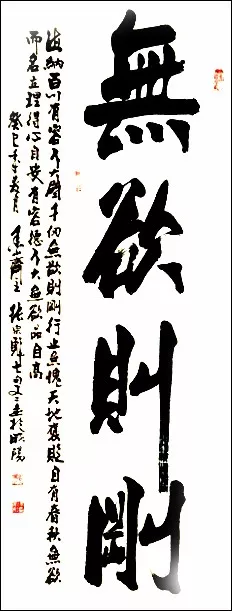 無欲則剛
海納百川有容乃大壁千仞無欲則剛行止無愧天地褒貶自有春秋無欲
而名立理得心自安有容德乃大無欲品自高
癸巳年 月 齋主 張 七旬又二書於 陽